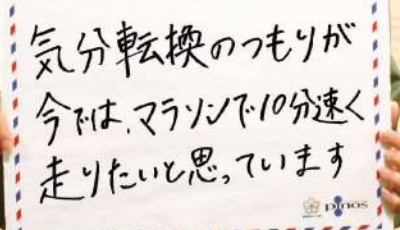 気分転換のつもりが
今では、マラソンで10分速く
走りたいと思っています
pinos